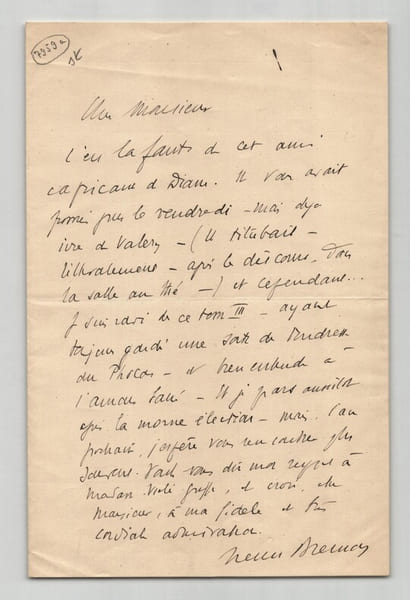 7959a
Cher Monsieur
C'est la faute de cet ami
capricant de Diane. Il vous avait
promis pour le vendredi – mais déjà
ivre de Valéry – (Il titubait –
littéralement – après le discours, dans
la salle au thé –) et cependant...
Je suis ravi de ce tome III – ayant
toujours gardé une sorte de tendresse
du – et bien entendu à
l'amour – Et je pars aussitôt
après la morne élection – mais, l'an
prochain, j'espère vous rencontrer plus
souvent. Veuillez dire mes respects à
Madame et croire, cher
Monsieur, à ma fidèle et très
cordiale admiration.
Henri Bremond